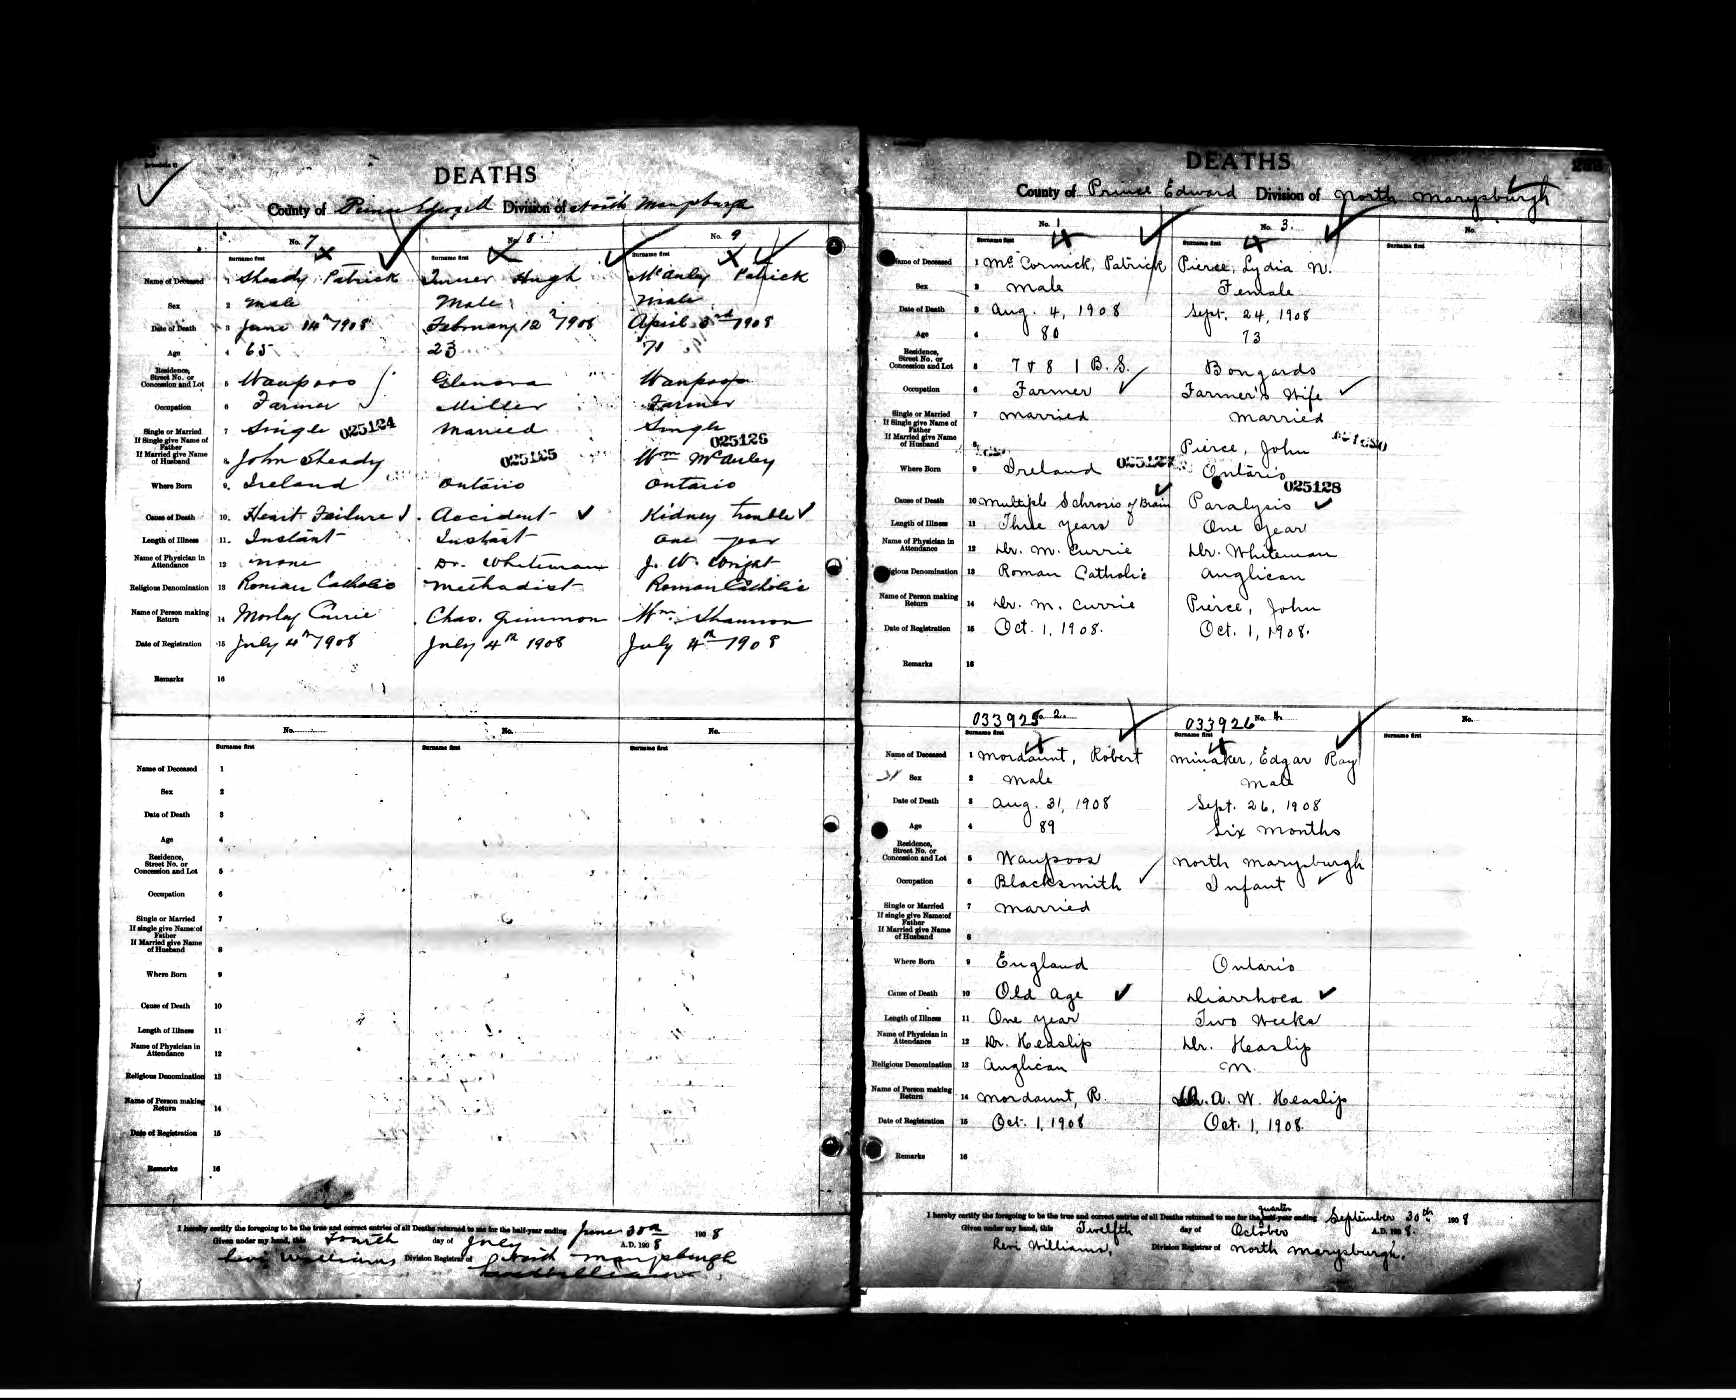 DEATHS
County of Prince Edward Division of North Marysburgh
No. 7 No. 8 No. 9
Surname first Surname first Surname first
Name of Deceased 1 Sheady Patrick Hugh McAuley Patrick
Sex 2 Male Male Male
Date of Death 3 June 14th 1908 February 12th 1908 April 3rd 1908
Age 4 65 23 71
Residence, Street No. or Concession and Lot 5 Waupoos Glenora Waupoos
Occupation 6 Farmer Miller Farmer
Single or Married 7 Single 025124 Married Single
If Single give Name of Father
025126
If Married give Name of Husband 8 John Sheady 025125 Wm McAuley
Where Born 9. Ireland Ontario Ontario
Cause of Death 10. Heart Failure Accident Kidney trouble
Length of Illness 11. Instant Instant One year
Name of Physician in Attendance 12 none Dr. Whiteman J. W. Wright
Religious Denomination 13 Roman Catholic Methodist Roman Catholic
Name of Person making Return 14 Morley Currie Chas. Grimmon Wm. Shannon
Date of Registration 15 July 4th 1908 July 4th 1908 July 4th 1908
Remarks 16
No. No. No.
Surname first Surname first Surname first
Name of Deceased 1
Sex 2
Date of Death 3
Age 4
Residence, Street No. or Concession and Lot 5
Occupation 6
Single or Married 7
If single give Name of Father
If Married give Name of Husband 8
Where Born 9
Cause of Death 10
Length of Illness 11
Name of Physician in Attendance 12
Religious Denomination 13
Name of Person making Return 14
Date of Registration 15
Remarks 16
I hereby certify the foregoing to be the true and correct entries of all Deaths returned to me for the half-year ending June 30th 1908
Given under my hand, this Fourth day of July A.D. 1908
Levi Williams Division Registrar of North Marysburgh
DEATHS
County of Prince Edward Division of North Marysburgh
No. 1 No. 3. No.
Surname first Surname first Surname first
Name of Deceased 1 McCormick, Patrick Pierce, Lydia N.
Sex 2 Male Female
Date of Death 3 Aug. 4, 1908 Sept. 24, 1908
Age 4 80 73
Residence, Street No. or Concession and Lot 5 7 & 8 1 B.S. Bongards
Occupation 6 Farmer Farmer's Wife
Single or Married 7 Married Married
If Single give Name of Father
If Married give Name of Husband 8 Pierce, John
Where Born 9 Ireland 025127 Ontario
025128
Cause of Death 10 Multiple Schrosis of Brain Paralysis
Length of Illness 11 Three Years One Year
Name of Physician in Attendance 12 Dr. M. Currie Dr. Whiteman
Religious Denomination 13 Roman Catholic Anglican
Name of Person making Return 14 Dr. M. Currie Pierce, John
Date of Registration 15 Oct. 1, 1908. Oct. 1, 1908.
Remarks 16
033925 No. 2. 033926 No. 4 No.
Surname first Surname first Surname first
Name of Deceased 1 Mordaunt, Robert Minaker, Edgar Ray
Sex 2 Male Male
Date of Death 3 Aug. 31, 1908 Sept. 26, 1908
Age 4 89 Six Months
Residence, Street No. or Concession and Lot 5 Waupoos North Marysburgh
Occupation 6 Blacksmith Infant
Single or Married 7 Married
If single give Name of Father
If Married give Name of Husband 8
Where Born 9 England Ontario
Cause of Death 10 Old Age Diarrhoea
Length of Illness 11 One year Two Weeks
Name of Physician in Attendance 12 Dr. Heaslip Dr. Heaslip
Religious Denomination 13 Anglican M
Name of Person making Return 14 Mordaunt, R. Dr. A. W. Heaslip
Date of Registration 15 Oct. 1, 1908 Oct. 1, 1908.
Remarks 16
quarter
I hereby certify the foregoing to be the true and correct entries of all Deaths returned to me for the half-year ending September 30th 1908
Given under my hand, this Twelfth day of October A.D. 1908.
Levi Williams, Division Registrar of North Marysburgh.